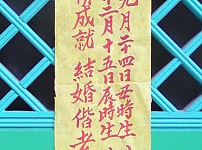 月二十四日丑時生
二月十五日辰時生
成就 結婚偕老